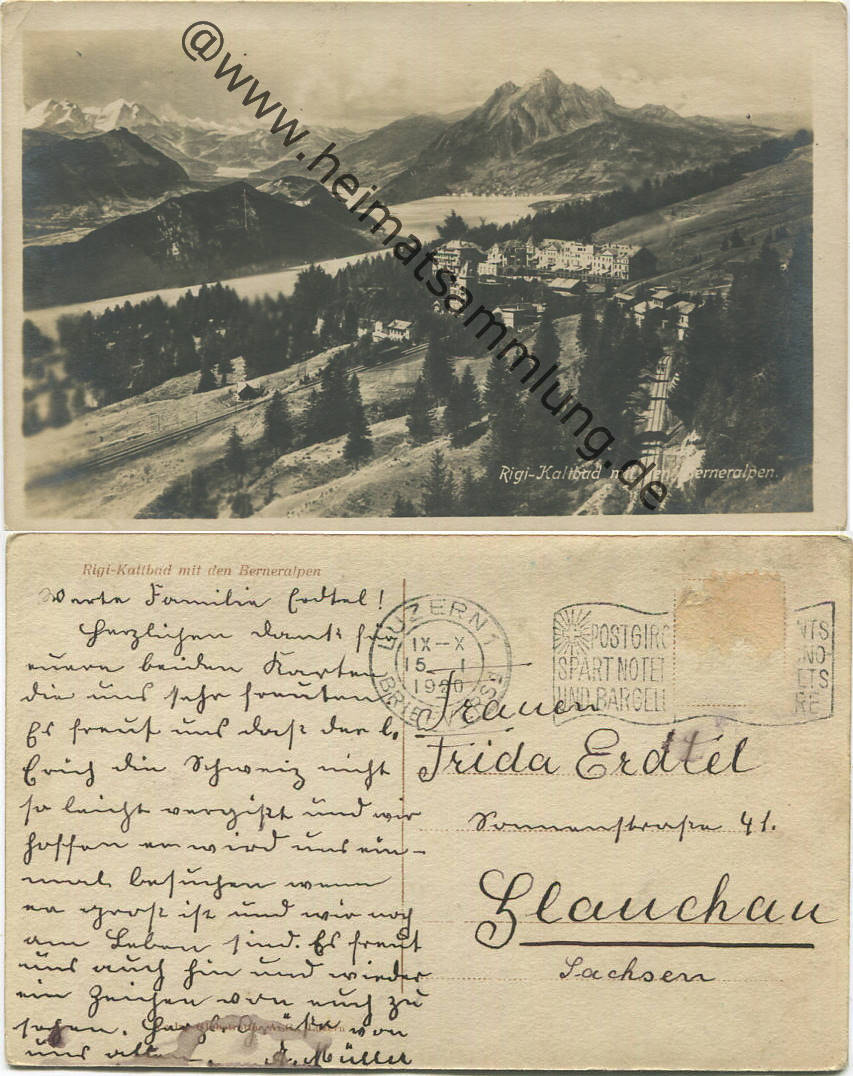 @www.heimatsammlung.de
Rigi-Kaltbad mit den Berneralpen.
Rigi-Kaltbad mit den Berneralpen
Werte Familie Erdtel!
Herzlichen dank für
euere beiden Karten
die uns sehr freuten
Es freut uns daß der l.
Erich die Schweiz nicht
so leicht vergißt und wir
hoffen er wird uns ein-
mal besuchen wenn
er groß ist und wir noch
am Leben sind. Es freut
uns auch hin und wieder
ein Zeichen von euch zu
sehen. Herzl. Grüße von
uns allen. A. Müller
LUZERN 1
IX-X
15. I
1920
BRIEF
POSTGIRO
SPART NOTEN
UND BARGEL
NTS
NO
ETS
RE
Frauen
Frida Erdtel
Sonnenstraße 41.
Glauchau
Sachsen